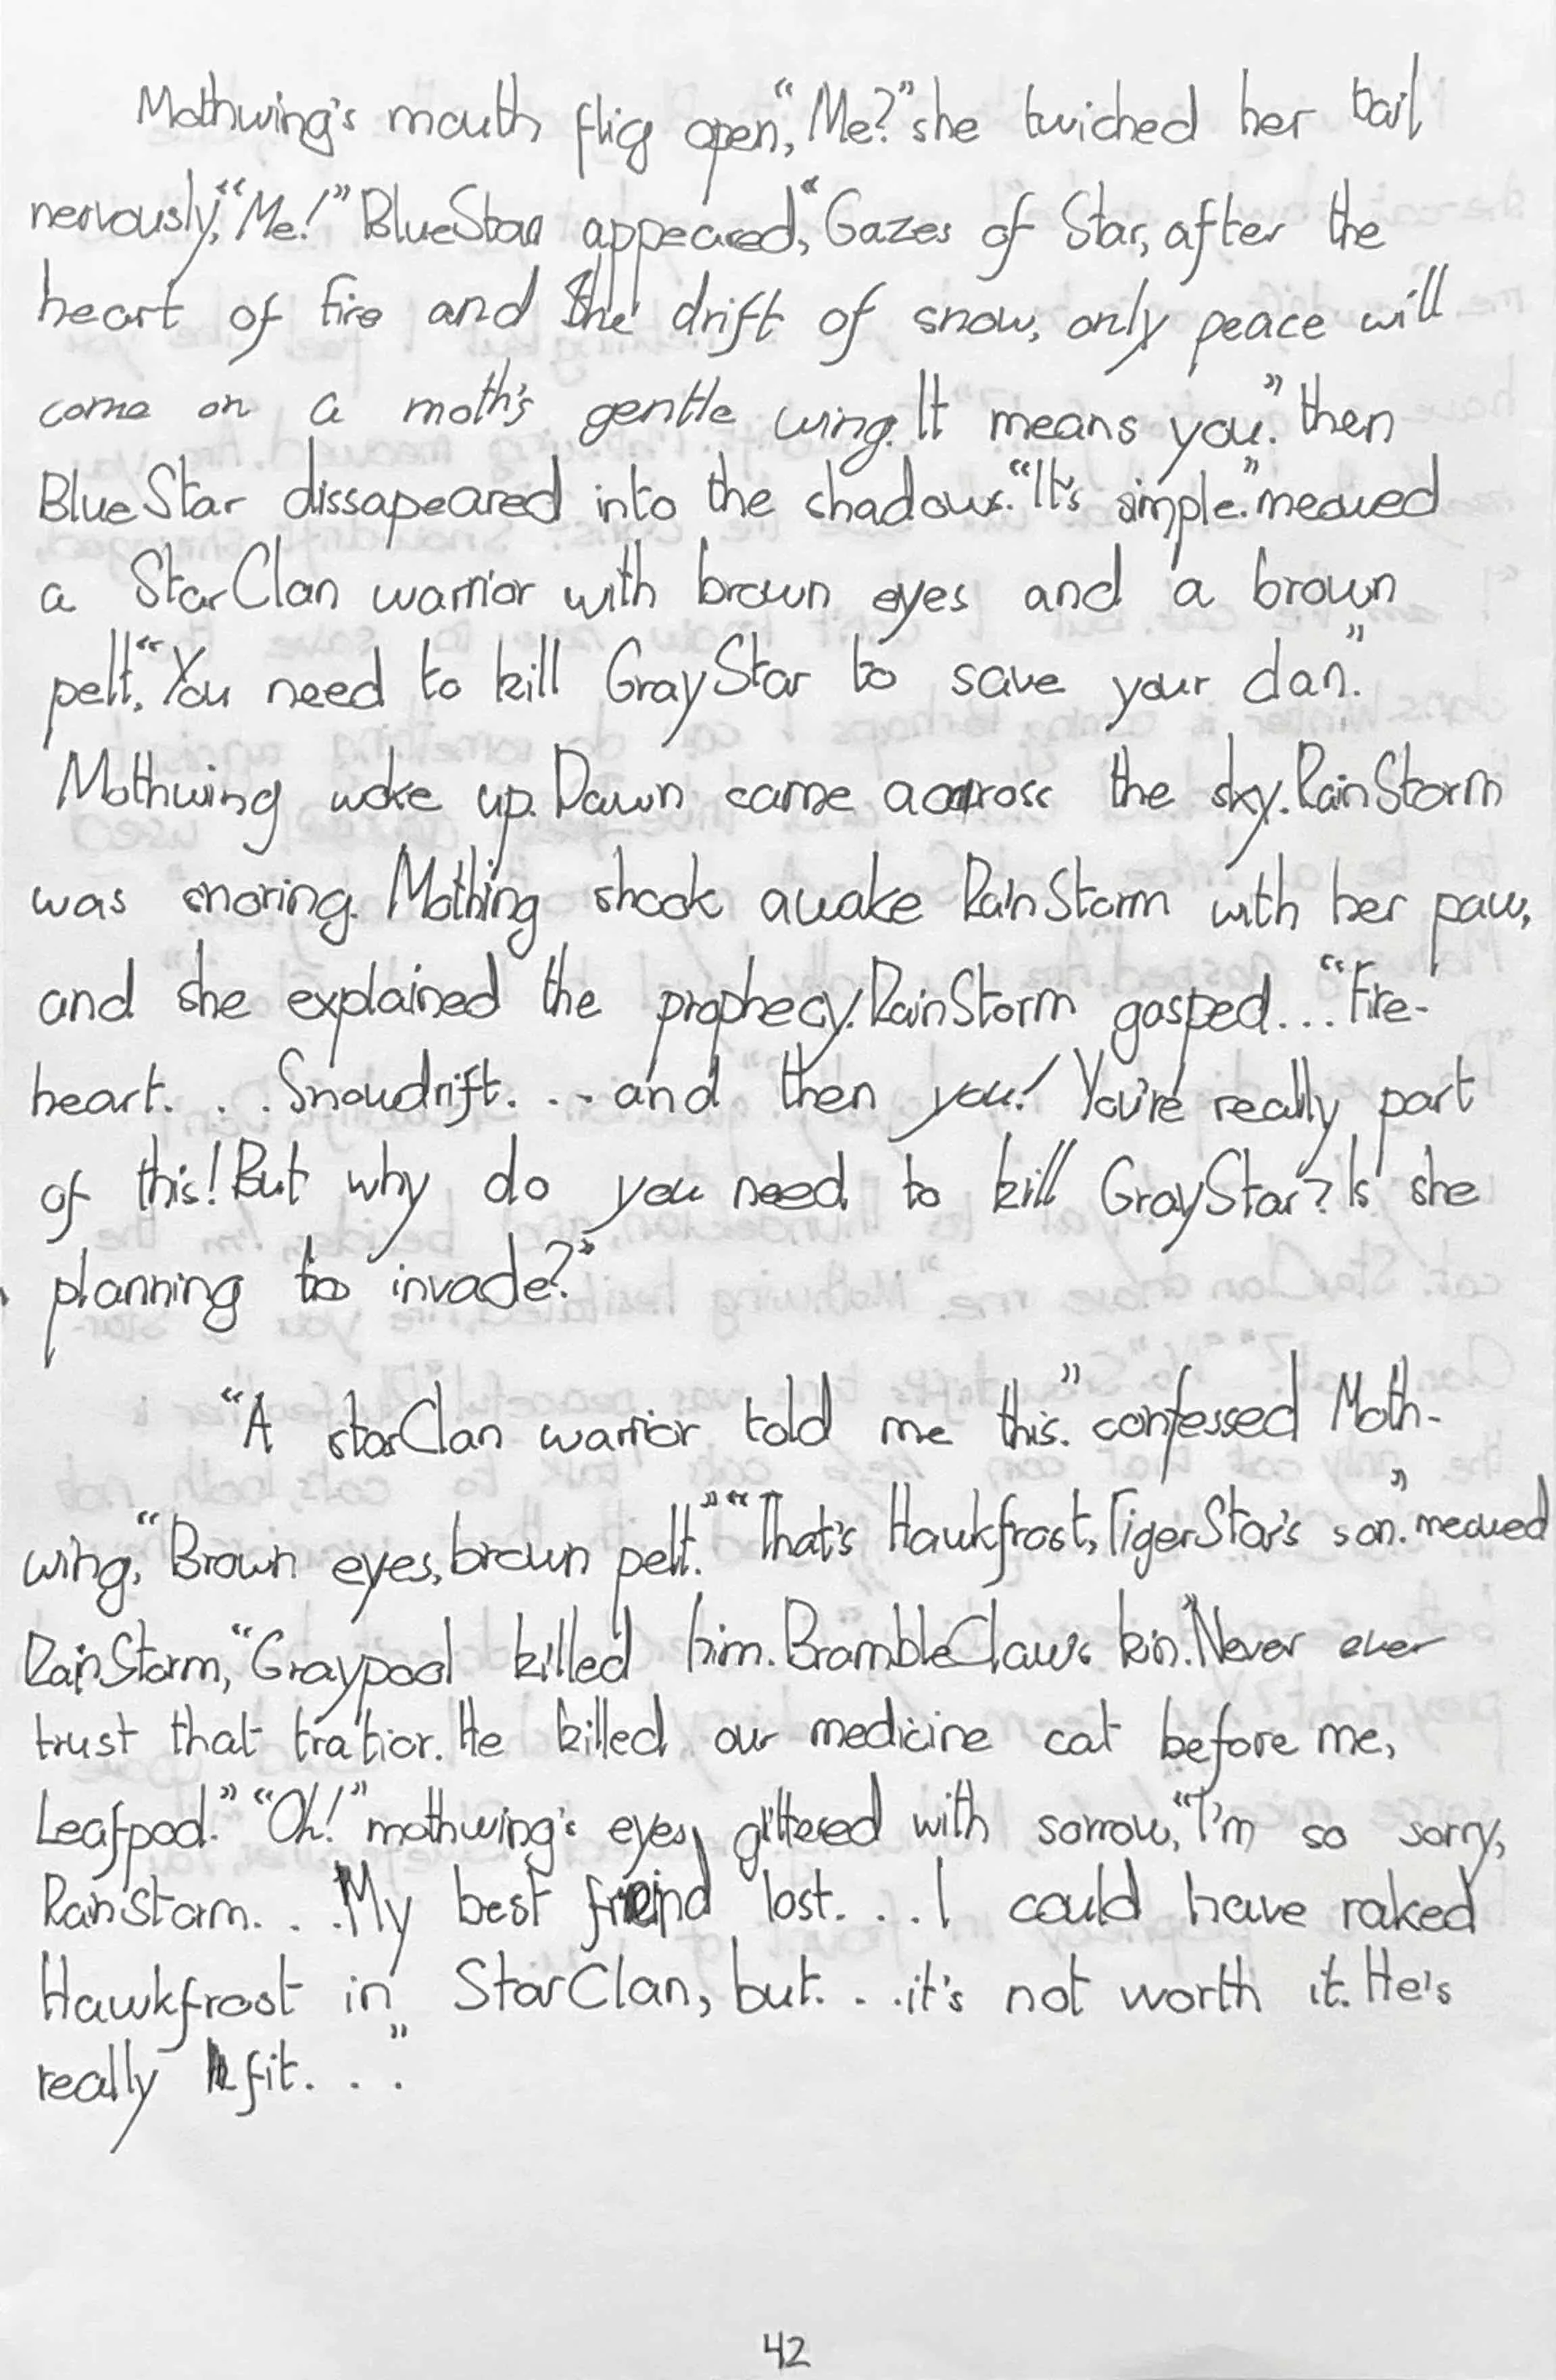 Mothwing's mouth flig open, "Me?" she twiched her tail
nervously, "Me!" BlueStar appeared, "Gazes of Star, after the
heart of fire and the drift of snow, only peace will
come on a moth's gentle wing. It means you." then
BlueStar dissapeared into the shadows. "It's simple." meowed
a StarClan warrior with brown eyes and a brown
pelt. "You need to kill GrayStar to save your clan."
Mothwing woke up. Dawn came across the sky. RainStorm
was snoring. Mothing shook awake RainStorm with her paw,
and she explained the prophecy. RainStorm gasped... "Fire-
heart. . . Snowdrift. . . and then you! You're really part
of this! But why do you need to kill GrayStar? Is she
planning to invade?"
"A starClan warrior told me this." confessed Moth-
wing, "Brown eyes, brown pelt." "That's Hawkfrost, TigerStar's son." meowed
RainStorm, "Graypool killed him. BrambleClaw's kin." Never ever
trust that tratior. He killed our medicine cat before me,
Leafpod." "Oh!" mothwing's eyes glittered with sorrow, "I'm so sorry,
RainStorm. . . My best freind lost. . . I could have raked
Hawkfrost in StarClan, but. . . it's not worth it. He's
really fit. . ."
42